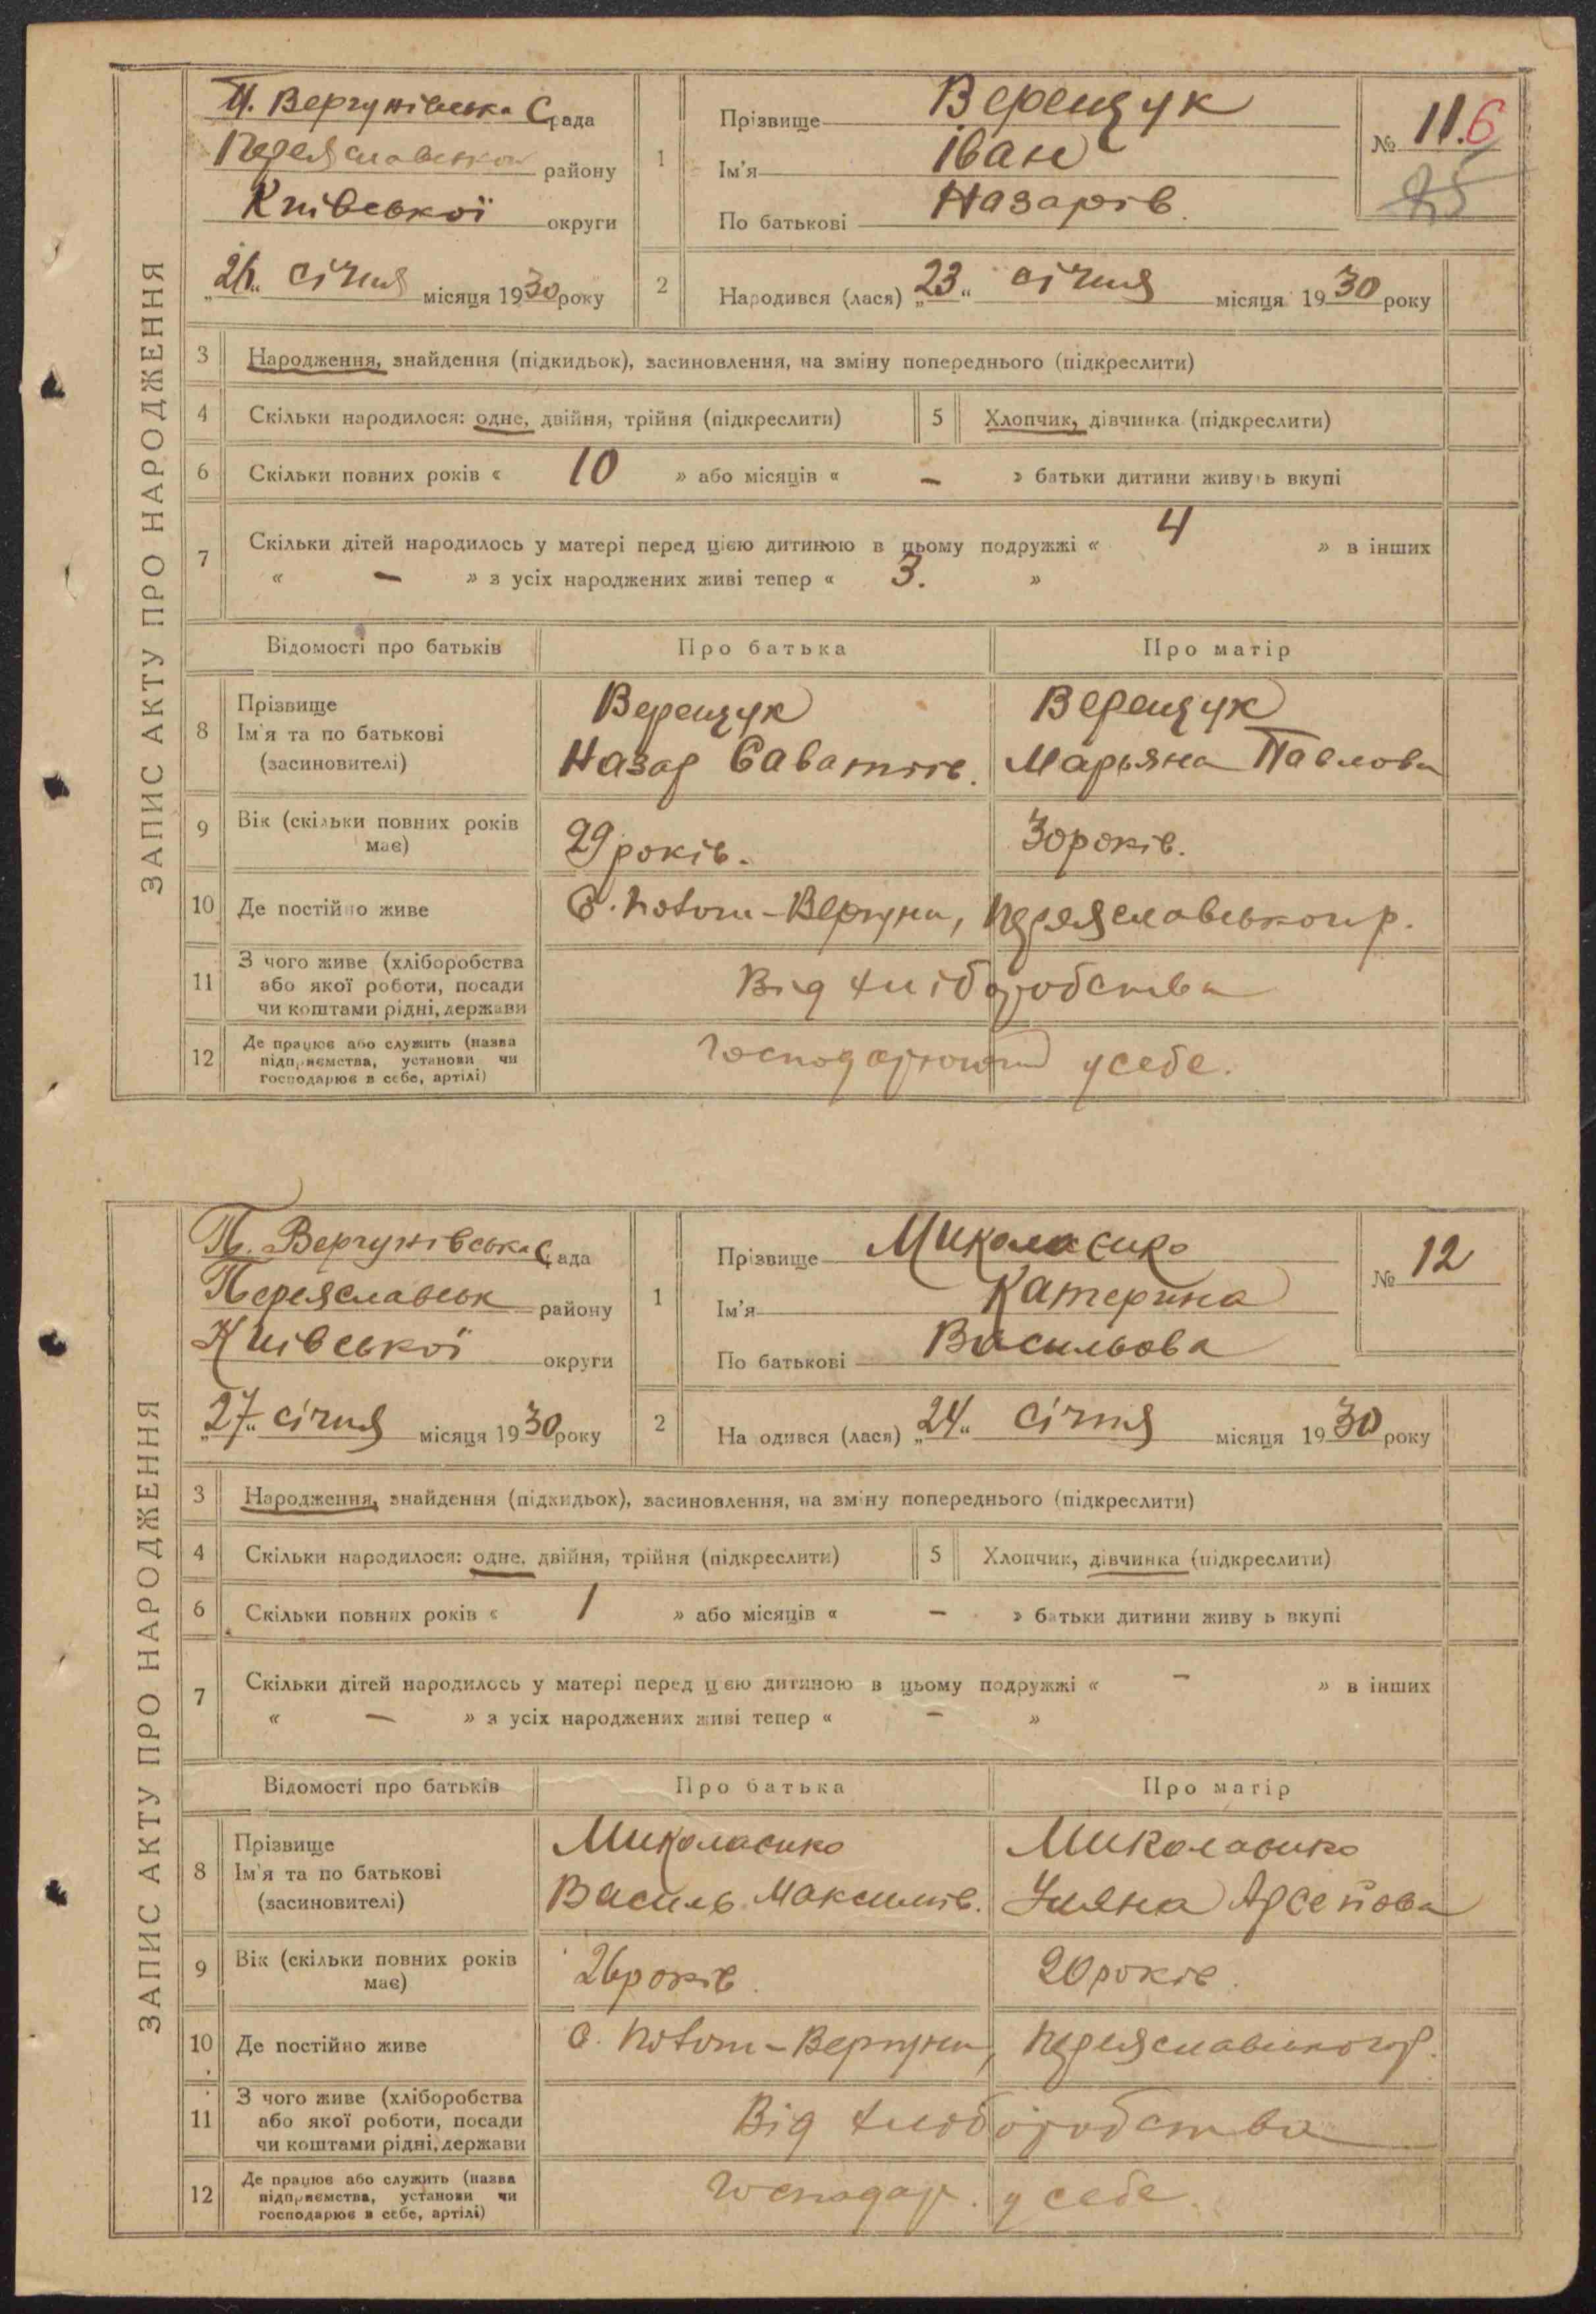 ЗАПИС АКТУ ПРО НАРОДЖЕННЯ
П. Вергунівська Срада
Переяславськ району
Київської округи
місяця 1930 року
„ січня
1 Прізвище Верещук
Ім'я Іван
По батькові Назарів
№ 11.6
2 Народився (лася) „23“ січня місяця 1930 року
3 Народження, знайдення (підкидьок), засиновлення, на зміну попереднього (підкреслити)
4 Скільки народилося: одне, двійня, трійня (підкреслити) 5 Хлопчик, дівчинка (підкреслити)
6 Скільки повних років « 10 » або місяців « – » батьки дитини живуть вкупі
7 Скільки дітей народилось у матері перед цією дитиною в цьому подружжі « 4 » в інших
« – » з усіх народжених живі тепер « 3. »
Відомості про батьків Про батька Про матір
8 Прізвище Верещук Верещук
Ім'я та по батькові Назар Саватіїв. Марьяна Павлова
(засиновителі)
9 Вік (скільки повних років має) 29 років. 30 років.
10 Де постійно живе С. Поток-Вергуни, Переяславського р.
11 З чого живе (хліборобства
або якої роботи, посади
чи коштами рідні, держави
Від хліборобства
12 Де працює або служить (назва
підприємства, установи чи
господарює в себе, артілі)
Господарюють у себе.
ЗАПИС АКТУ ПРО НАРОДЖЕННЯ
П. Вергунівська Срада
Переяславськ району
Київської округи
„27“ січня місяця 1930 року
1 Прізвище
Ім'я Катерина
По батькові Васильова
№ 12
2 Народився (лася) „24“ січня місяця 1930 року
3 Народження, знайдення (підкидьок), засиновлення, на зміну попереднього (підкреслити)
4 Скільки народилося: одне, двійня, трійня (підкреслити) 5 Хлопчик, дівчинка (підкреслити)
6 Скільки повних років « 1 » або місяців « – » батьки дитини живуть вкупі
7 Скільки дітей народилось у матері перед цією дитиною в цьому подружжі « – » в інших
« – » з усіх народжених живі тепер « – »
Відомості про батьків Про батька Про матір
8 Прізвище
Ім'я та по батькові Василь Максимів. Уляна
(засиновителі)
9 Вік (скільки повних років має) 26 років 20 років.
10 Де постійно живе С. Поток-Вергуни, Переяславського р.
11 З чого живе (хліборобства
або якої роботи, посади
чи коштами рідні, держави
Від хліборобства
12 Де працює або служить (назва
підприємства, установи чи
господарює в себе, артілі)
Господар. у себе.